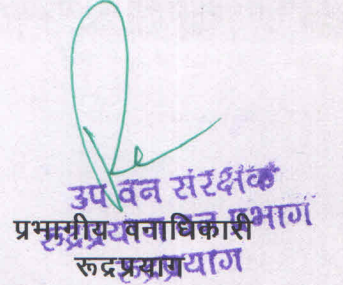 उप वन संरक्षक
रूद्रप्रयाग वन प्रभाग
रूद्रप्रयाग
प्रभागीय वनाधिकारी
रूद्रप्रयाग